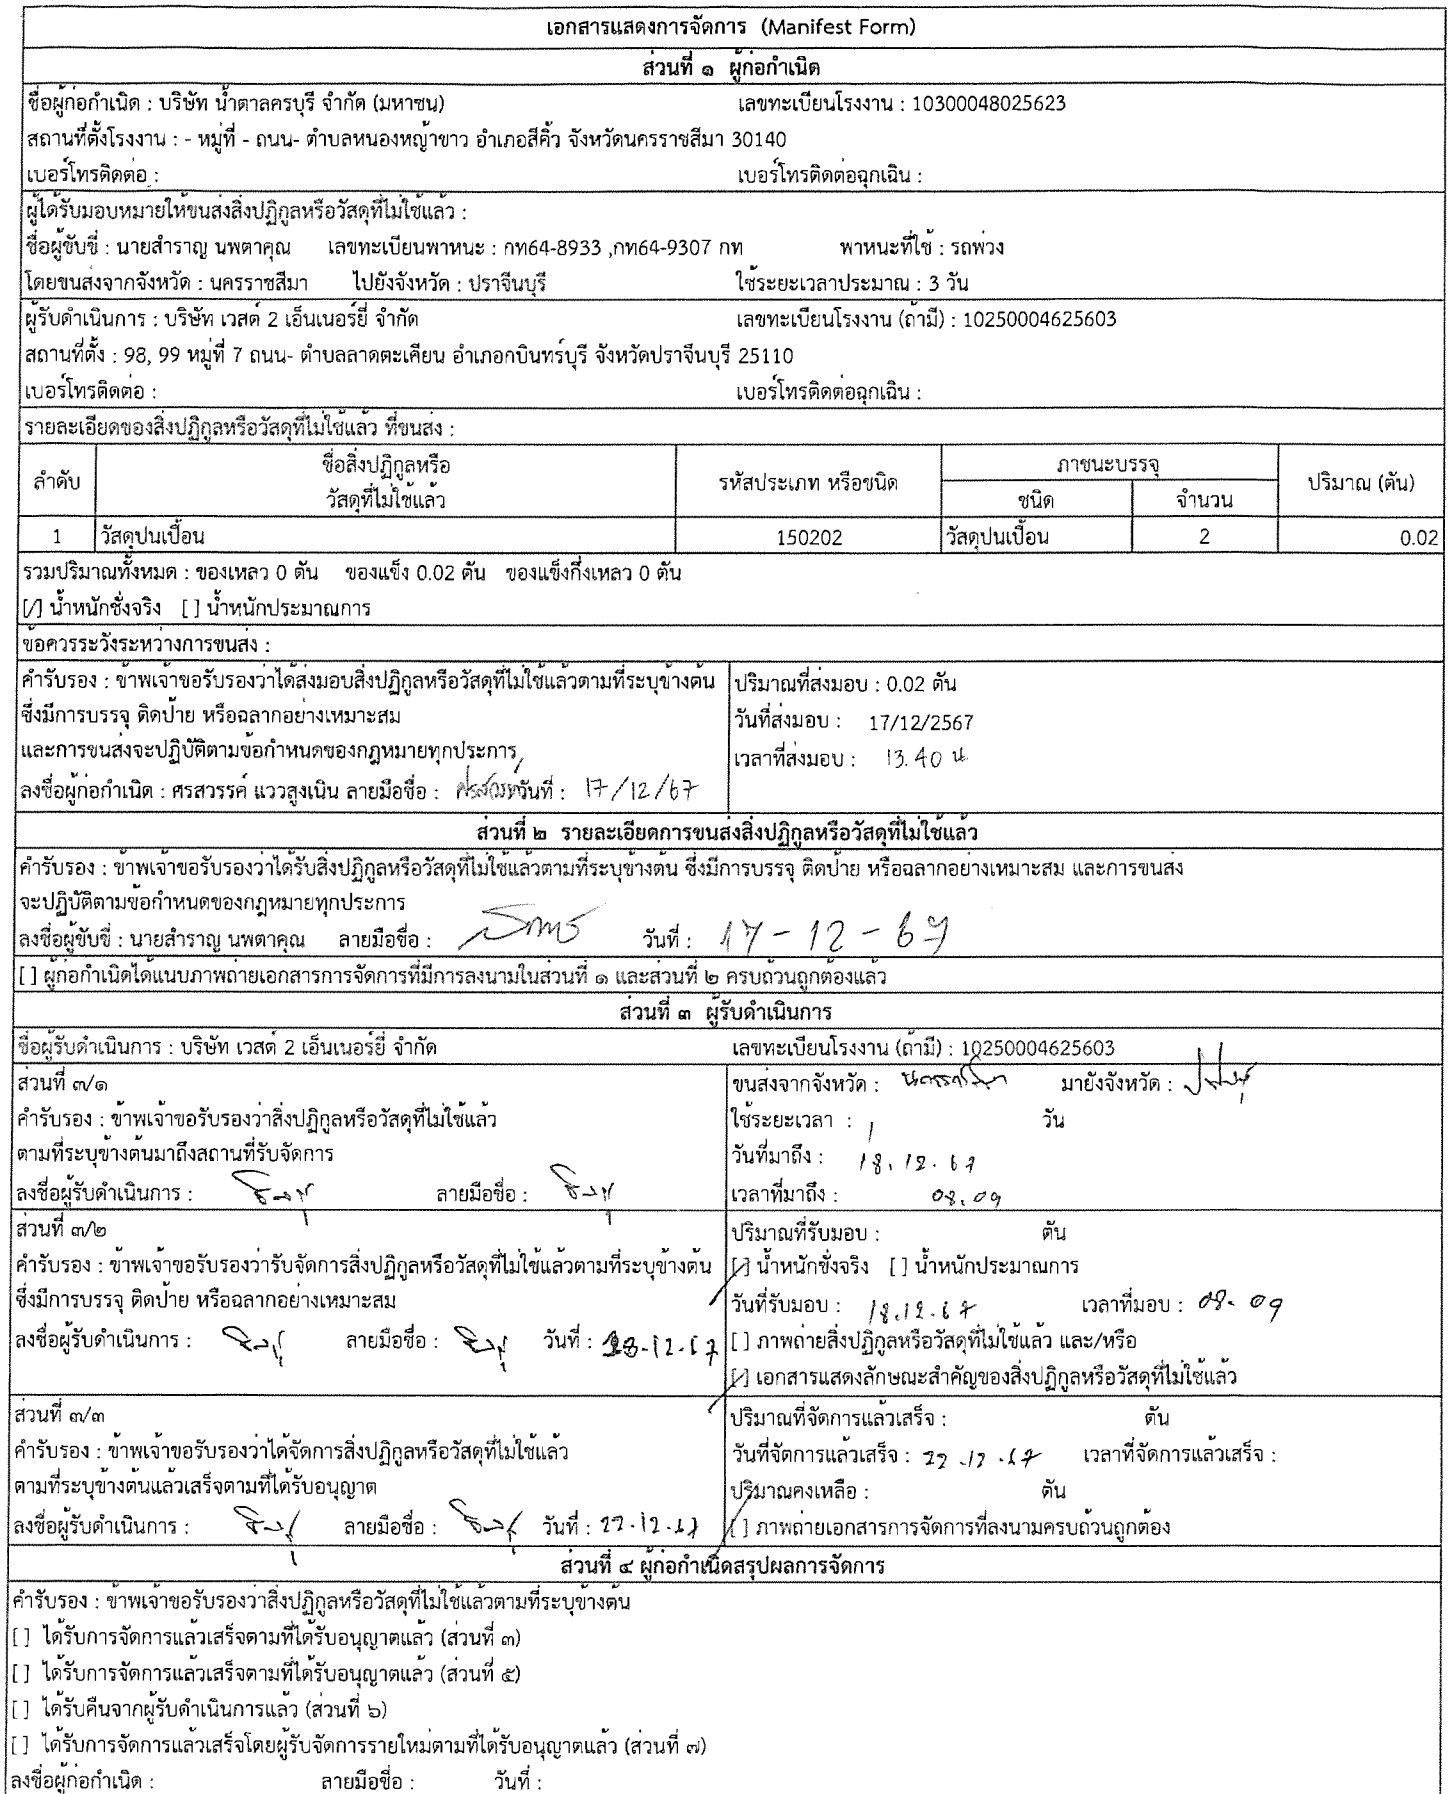 เอกสารแสดงการจัดการ (Manifest Form)
ส่วนที่ ๑ ผู้ก่อกำเนิด
ชื่อผู้ก่อกำเนิด : บริษัท น้ำตาลครบุรี จำกัด (มหาชน) เลขทะเบียนโรงงาน : 10300048025623
สถานที่ตั้งโรงงาน : - หมู่ที่ - ถนน- ตำบลหนองหญ้าขาว อำเภอสีคิ้ว จังหวัดนครราชสีมา 30140
เบอร์โทรติดต่อ : เบอร์โทรติดต่อฉุกเฉิน :
ผู้ได้รับมอบหมายให้ขนส่งสิ่งปฏิกูลหรือวัสดุที่ไม่ใช้แล้ว :
ชื่อผู้ขับขี่ : นายสำราญ นพตาคุณ เลขทะเบียนพาหนะ : กท64-8933 ,กท64-9307 กท พาหนะที่ใช้ : รถพ่วง
โดยขนส่งจากจังหวัด : นครราชสีมา ไปยังจังหวัด : ปราจีนบุรี ใช้ระยะเวลาประมาณ : 3 วัน
ผู้รับดำเนินการ : บริษัท เวสต์ 2 เอ็นเนอร์ยี่ จำกัด เลขทะเบียนโรงงาน (ถ้ามี) : 10250004625603
สถานที่ตั้ง : 98, 99 หมู่ที่ 7 ถนน- ตำบลลาดตะเคียน อำเภอกบินทร์บุรี จังหวัดปราจีนบุรี 25110
เบอร์โทรติดต่อ : เบอร์โทรติดต่อฉุกเฉิน :
รายละเอียดของสิ่งปฏิกูลหรือวัสดุที่ไม่ใช้แล้ว ที่ขนส่ง :
ลำดับ ชื่อสิ่งปฏิกูลหรือ วัสดุที่ไม่ใช้แล้ว รหัสประเภท หรือชนิด ภาชนะบรรจุ ปริมาณ (ตัน)
ชนิด จำนวน
1 วัสดุปนเปื้อน 150202 วัสดุปนเปื้อน 2 0.02
รวมปริมาณทั้งหมด : ของเหลว 0 ตัน ของแข็ง 0.02 ตัน ของแข็งกึ่งเหลว 0 ตัน
[/] น้ำหนักชั่งจริง [ ] น้ำหนักประมาณการ
ข้อควรระวังระหว่างการขนส่ง :
คำรับรอง : ข้าพเจ้าขอรับรองว่าได้ส่งมอบสิ่งปฏิกูลหรือวัสดุที่ไม่ใช้แล้วตามที่ระบุข้างต้น ปริมาณที่ส่งมอบ : 0.02 ตัน
ซึ่งมีการบรรจุ ติดป้าย หรือฉลากอย่างเหมาะสม วันที่ส่งมอบ : 17/12/2567
และการขนส่งจะปฏิบัติตามข้อกำหนดของกฎหมายทุกประการ เวลาที่ส่งมอบ : 13.40 น
ลงชื่อผู้ก่อกำเนิด : ศรสวรรค์ แววสูงเนิน ลายมือชื่อ : วันที่ : 17/12/67
ส่วนที่ ๒ รายละเอียดการขนส่งสิ่งปฏิกูลหรือวัสดุที่ไม่ใช้แล้ว
คำรับรอง : ข้าพเจ้าขอรับรองว่าได้รับสิ่งปฏิกูลหรือวัสดุที่ไม่ใช้แล้วตามที่ระบุข้างต้น ซึ่งมีการบรรจุ ติดป้าย หรือฉลากอย่างเหมาะสม และการขนส่ง
จะปฏิบัติตามข้อกำหนดของกฎหมายทุกประการ
ลงชื่อผู้ขับขี่ : นายสำราญ นพตาคุณ ลายมือชื่อ : วันที่ : 17 - 12 - 67
[ ] ผู้ก่อกำเนิดได้แนบภาพถ่ายเอกสารการจัดการที่มีการลงนามในส่วนที่ ๑ และส่วนที่ ๒ ครบถ้วนถูกต้องแล้ว
ส่วนที่ ๓ ผู้รับดำเนินการ
ชื่อผู้รับดำเนินการ : บริษัท เวสต์ 2 เอ็นเนอร์ยี่ จำกัด เลขทะเบียนโรงงาน (ถ้ามี) : 10250004625603
ส่วนที่ ๓/๑ ขนส่งจากจังหวัด : นครราชสีมา มายังจังหวัด :
คำรับรอง : ข้าพเจ้าขอรับรองว่าสิ่งปฏิกูลหรือวัสดุที่ไม่ใช้แล้ว ใช้ระยะเวลา : 1 วัน
ตามที่ระบุข้างต้นมาถึงสถานที่รับจัดการ วันที่มาถึง : 18.12.67
ลงชื่อผู้รับดำเนินการ : ลายมือชื่อ : เวลาที่มาถึง : 08.09
ส่วนที่ ๓/๒ ปริมาณที่รับมอบ : ตัน
คำรับรอง : ข้าพเจ้าขอรับรองว่ารับจัดการสิ่งปฏิกูลหรือวัสดุที่ไม่ใช้แล้วตามที่ระบุข้างต้น [/] น้ำหนักชั่งจริง [ ] น้ำหนักประมาณการ
ซึ่งมีการบรรจุ ติดป้าย หรือฉลากอย่างเหมาะสม วันที่รับมอบ : 18.12.67 เวลาที่มอบ : 08.09
ลงชื่อผู้รับดำเนินการ : ลายมือชื่อ : วันที่ : 18.12.67 [ ] ภาพถ่ายสิ่งปฏิกูลหรือวัสดุที่ไม่ใช้แล้ว และ/หรือ
[/] เอกสารแสดงลักษณะสำคัญของสิ่งปฏิกูลหรือวัสดุที่ไม่ใช้แล้ว
ส่วนที่ ๓/๓ ปริมาณที่จัดการแล้วเสร็จ : ตัน
คำรับรอง : ข้าพเจ้าขอรับรองว่าได้จัดการสิ่งปฏิกูลหรือวัสดุที่ไม่ใช้แล้ว วันที่จัดการแล้วเสร็จ : 22.12.67 เวลาที่จัดการแล้วเสร็จ :
ตามที่ระบุข้างต้นแล้วเสร็จตามที่ได้รับอนุญาต ปริมาณคงเหลือ : ตัน
ลงชื่อผู้รับดำเนินการ : ลายมือชื่อ : วันที่ : 22.12.67 [ ] ภาพถ่ายเอกสารการจัดการที่ลงนามครบถ้วนถูกต้อง
ส่วนที่ ๔ ผู้ก่อกำเนิดสรุปผลการจัดการ
คำรับรอง : ข้าพเจ้าขอรับรองว่าสิ่งปฏิกูลหรือวัสดุที่ไม่ใช้แล้วตามที่ระบุข้างต้น
[ ] ได้รับการจัดการแล้วเสร็จตามที่ได้รับอนุญาตแล้ว (ส่วนที่ ๓)
[ ] ได้รับการจัดการแล้วเสร็จตามที่ได้รับอนุญาตแล้ว (ส่วนที่ ๕)
[ ] ได้รับคืนจากผู้รับดำเนินการแล้ว (ส่วนที่ ๖)
[ ] ได้รับการจัดการแล้วเสร็จโดยผู้รับจัดการรายใหม่ตามที่ได้รับอนุญาตแล้ว (ส่วนที่ ๗)
ลงชื่อผู้ก่อกำเนิด : ลายมือชื่อ : วันที่ :